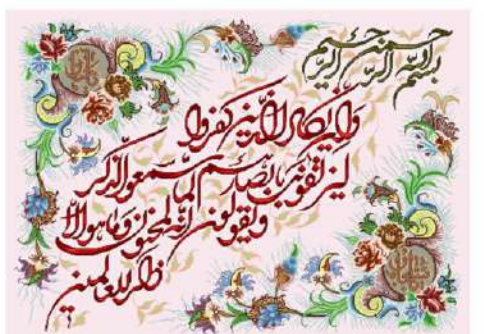 بسم الله الرحمن الرحيم
وإن يكاد الذين كفروا
ليزلقونك بأبصارهم لما سمعوا الذكر
ويقولون إنه لمجنون وما هو إلا
ذكر للعالمين